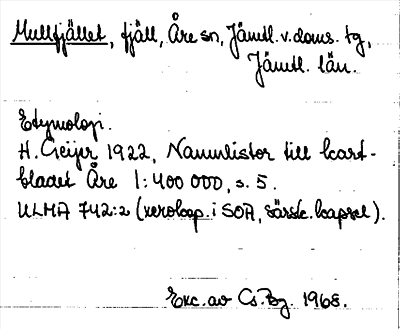 Mullfjället, fjäll, Åre sn, Jämtl. v. doms. tg,
Jämtl. län.
Etymologi.
H. Geijer 1922, Namnlistor till kart-
bladet Åre 1:400 000, s. 5.
ULMA 742:2 (xerokop. i SOA, särsk. kapsel).
Exc. av Cs. Bg. 1968.